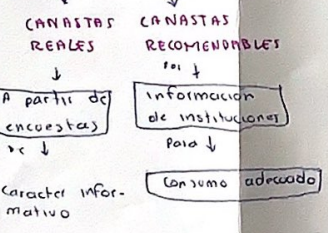 CANASTAS
REALES
↓
A partir de
encuestas
DE ↓
Caracter infor-
mativo
CANASTAS
RECOMENDABLES
POR ↓
información
de instituciones
Para ↓
Consumo adecuado